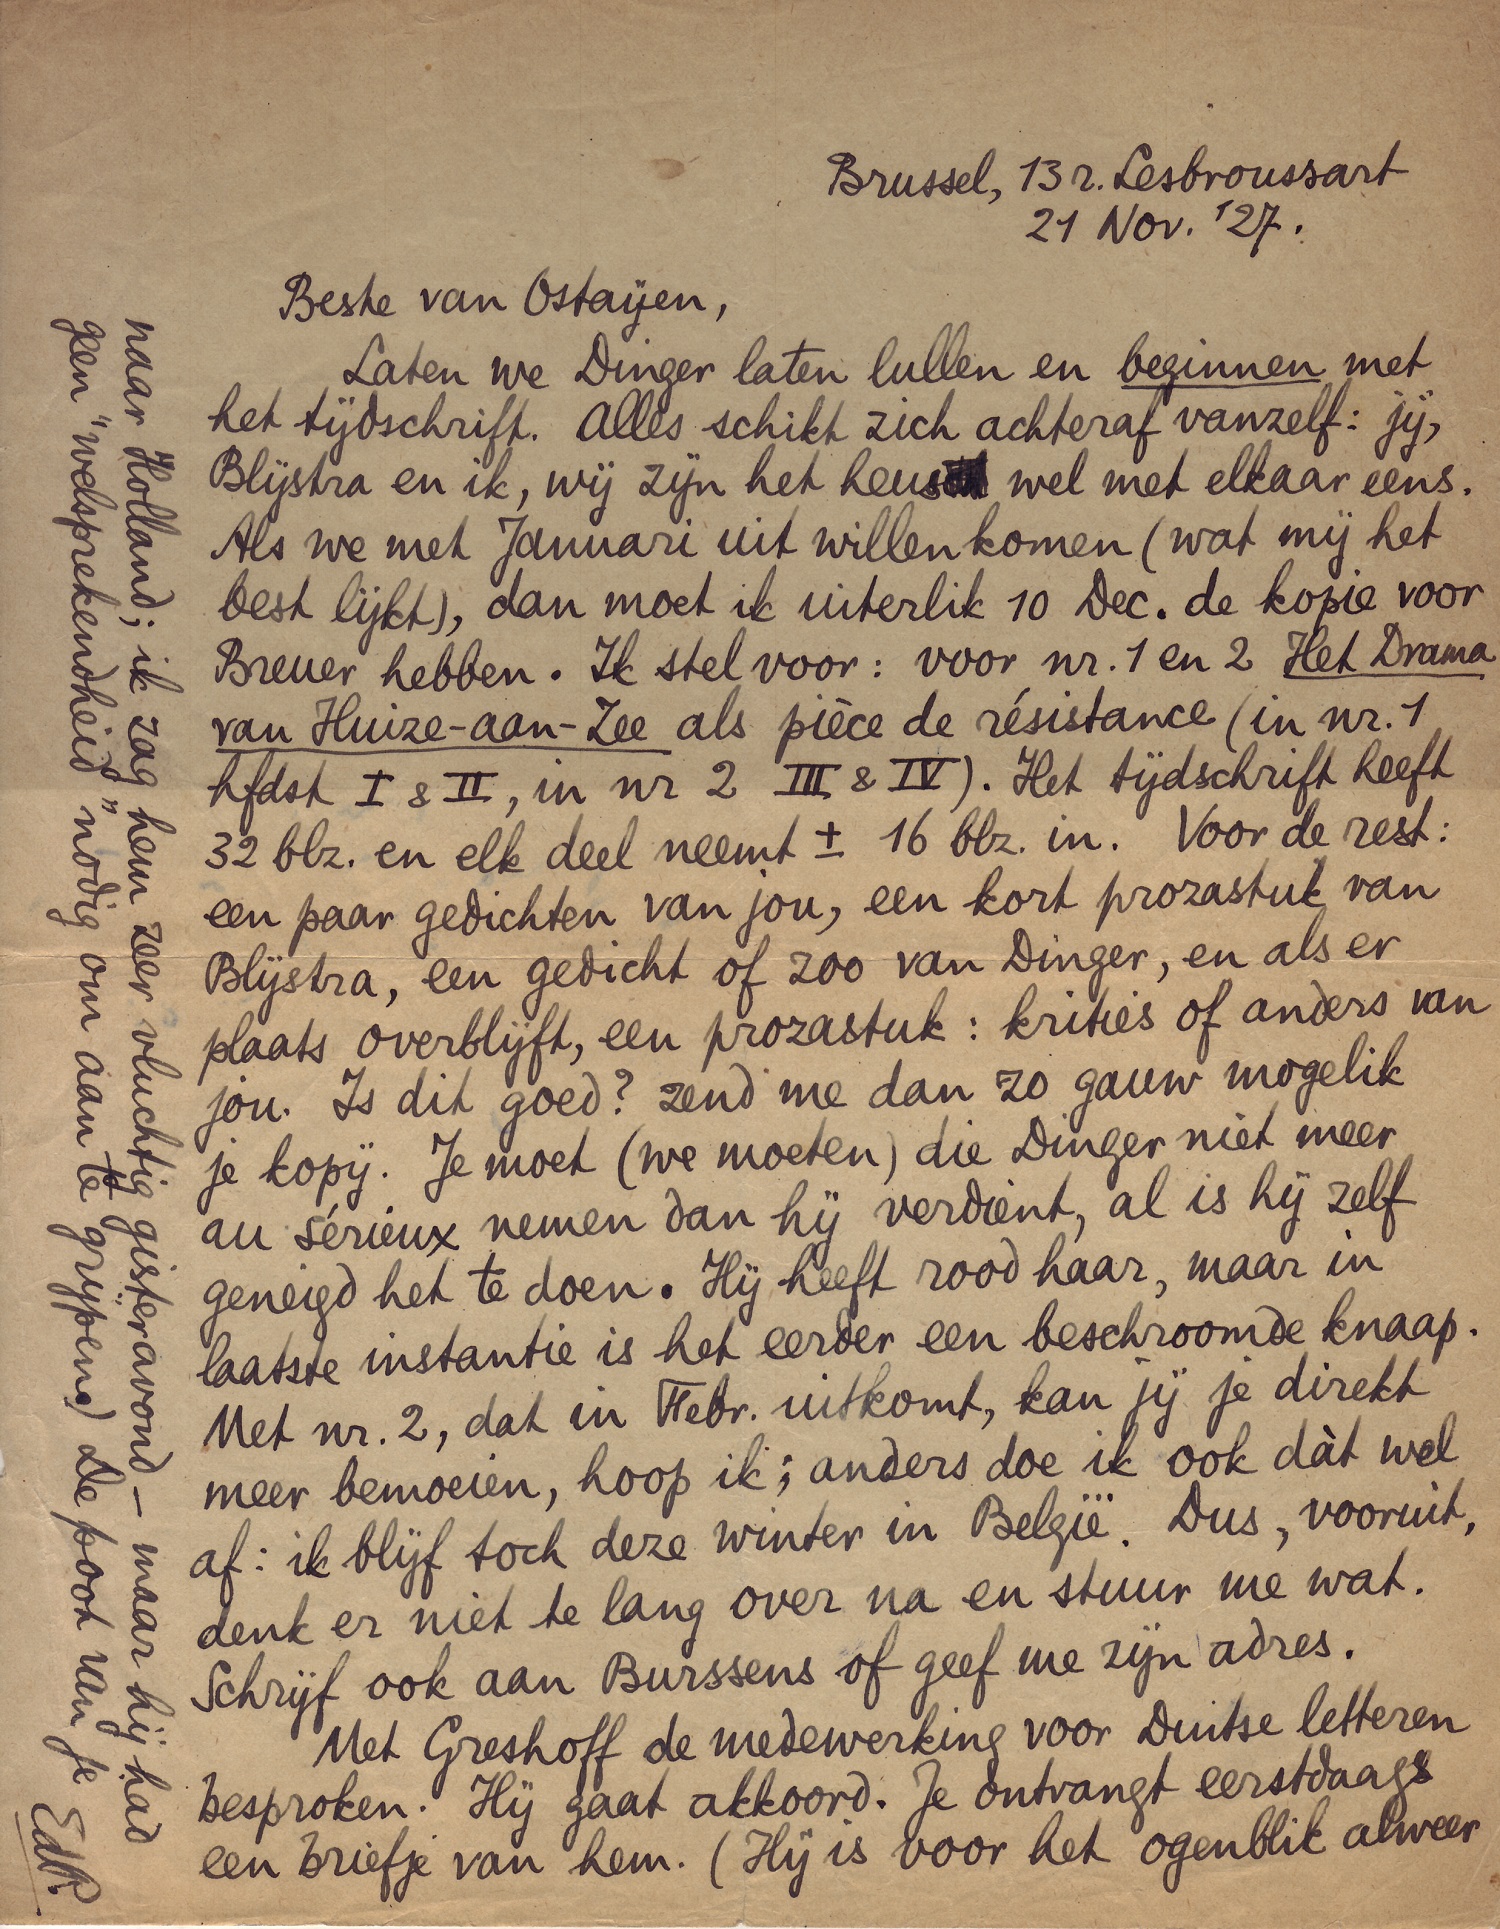 Brussel, 13 r. Lesbroussart
21 Nov. '27.
Beste van Ostaijen,
Laten we Dinger laten lullen en beginnen met
het tijdschrift. Alles schikt zich achteraf vanzelf: jij,
Blijstra en ik, wij zijn het heus wel met elkaar eens.
Als we met Januari uit willen komen (wat mij het
best lijkt), dan moet ik uiterlik 10 Dec. de kopie voor
Breuer hebben. Ik stel voor: voor nr. 1 en 2 Het Drama
van Huize-aan-Zee als pièce de résistance (in nr. 1
hfdst I & II, in nr 2 III & IV). Het tijdschrift heeft
32 blz. en elk deel neemt ± 16 blz. in. Voor de rest:
een paar gedichten van jou, een kort prozastuk van
Blijstra, een gedicht of zoo van Dinger, en als er
plaats overblijft, een prozastuk: kritiés of anders van
jou. Is dit goed? zend me dan zo gauw mogelik
je kopij. Je moet (we moeten) die Dinger niet meer
au sérieux nemen dan hij verdient, al is hij zelf
geneigd het te doen. Hij heeft rood haar, maar in
laatste instantie is het eerder een beschroomde knaap.
Met nr. 2, dat in Febr. uitkomt, kan jij je direkt
meer bemoeien, hoop ik; anders doe ik ook dàt wel
af: ik blijf toch deze winter in België. Dus, vooruit,
denk er niet te lang over na en stuur me wat.
Schrijf ook aan Burssens of geef me zijn adres.
Met Greshoff de medewerking voor Duitse letteren
besproken. Hij gaat akkoord. Je ontvangt eerstdaags
een briefje van hem. (Hij is voor het ogenblik alweer
naar Holland; ik zag hem zeer vluchtig gisteravond – maar hij had
geen "welsprekendheid" nodig om aan te grijpen.) De poot van je
EdP.